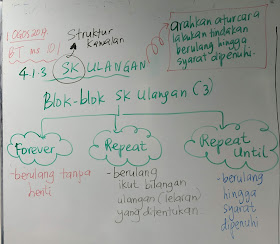 Struktur
kawalan
1 OGOS 2019
BT ms 101
4.1.3 SK ULANGAN
arahkan aturcara
lakukan tindakan
berulang hingga
syarat dipenuhi.
Blok-blok SK Ulangan (3)
Forever
Repeat
Repeat
Until
-berulang tanpa
henti
-berulang
ikut bilangan
ulangan (lelaran)
yang ditentukan
-berulang
hingga
syarat
dipenuhi